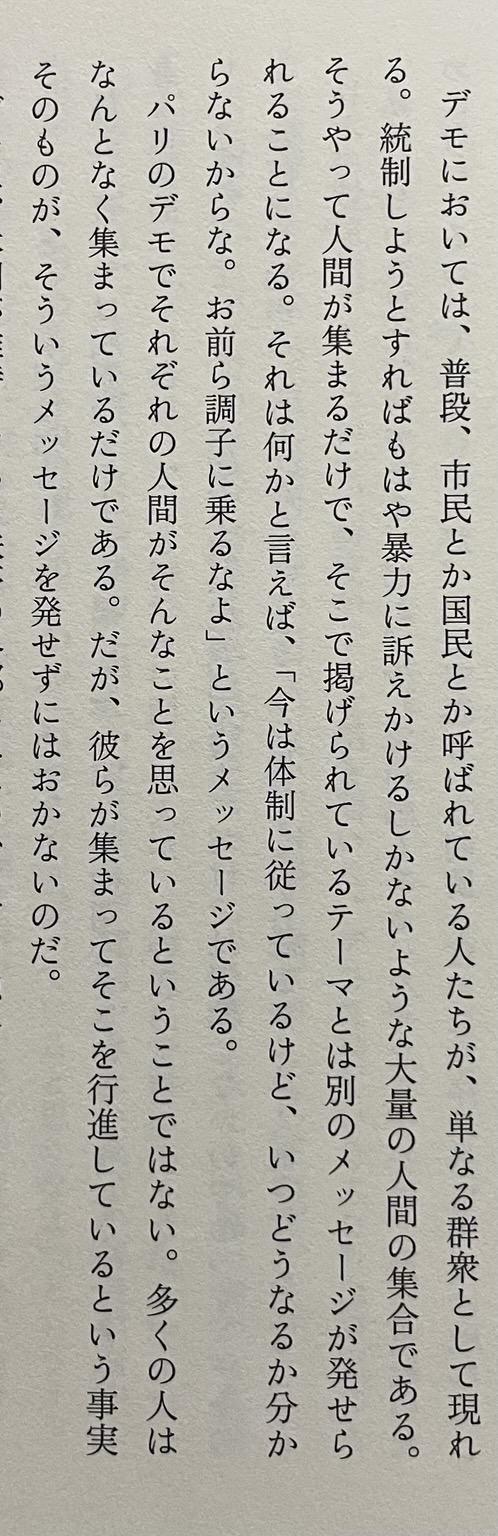 デモにおいては、普段、市民とか国民とか呼ばれている人たちが、単なる群衆として現れ
る。統制しようとすればもはや暴力に訴えかけるしかないような大量の人間の集合である。
そうやって人間が集まるだけで、そこで掲げられているテーマとは別のメッセージが発せら
れることになる。それは何かと言えば、「今は体制に従っているけど、いつどうなるか分か
らないからな。お前ら調子に乗るなよ」というメッセージである。
パリのデモでそれぞれの人間がそんなことを思っているということではない。多くの人は
なんとなく集まっているだけである。だが、彼らが集まってそこを行進しているという事実
そのものが、そういうメッセージを発せずにはおかないのだ。